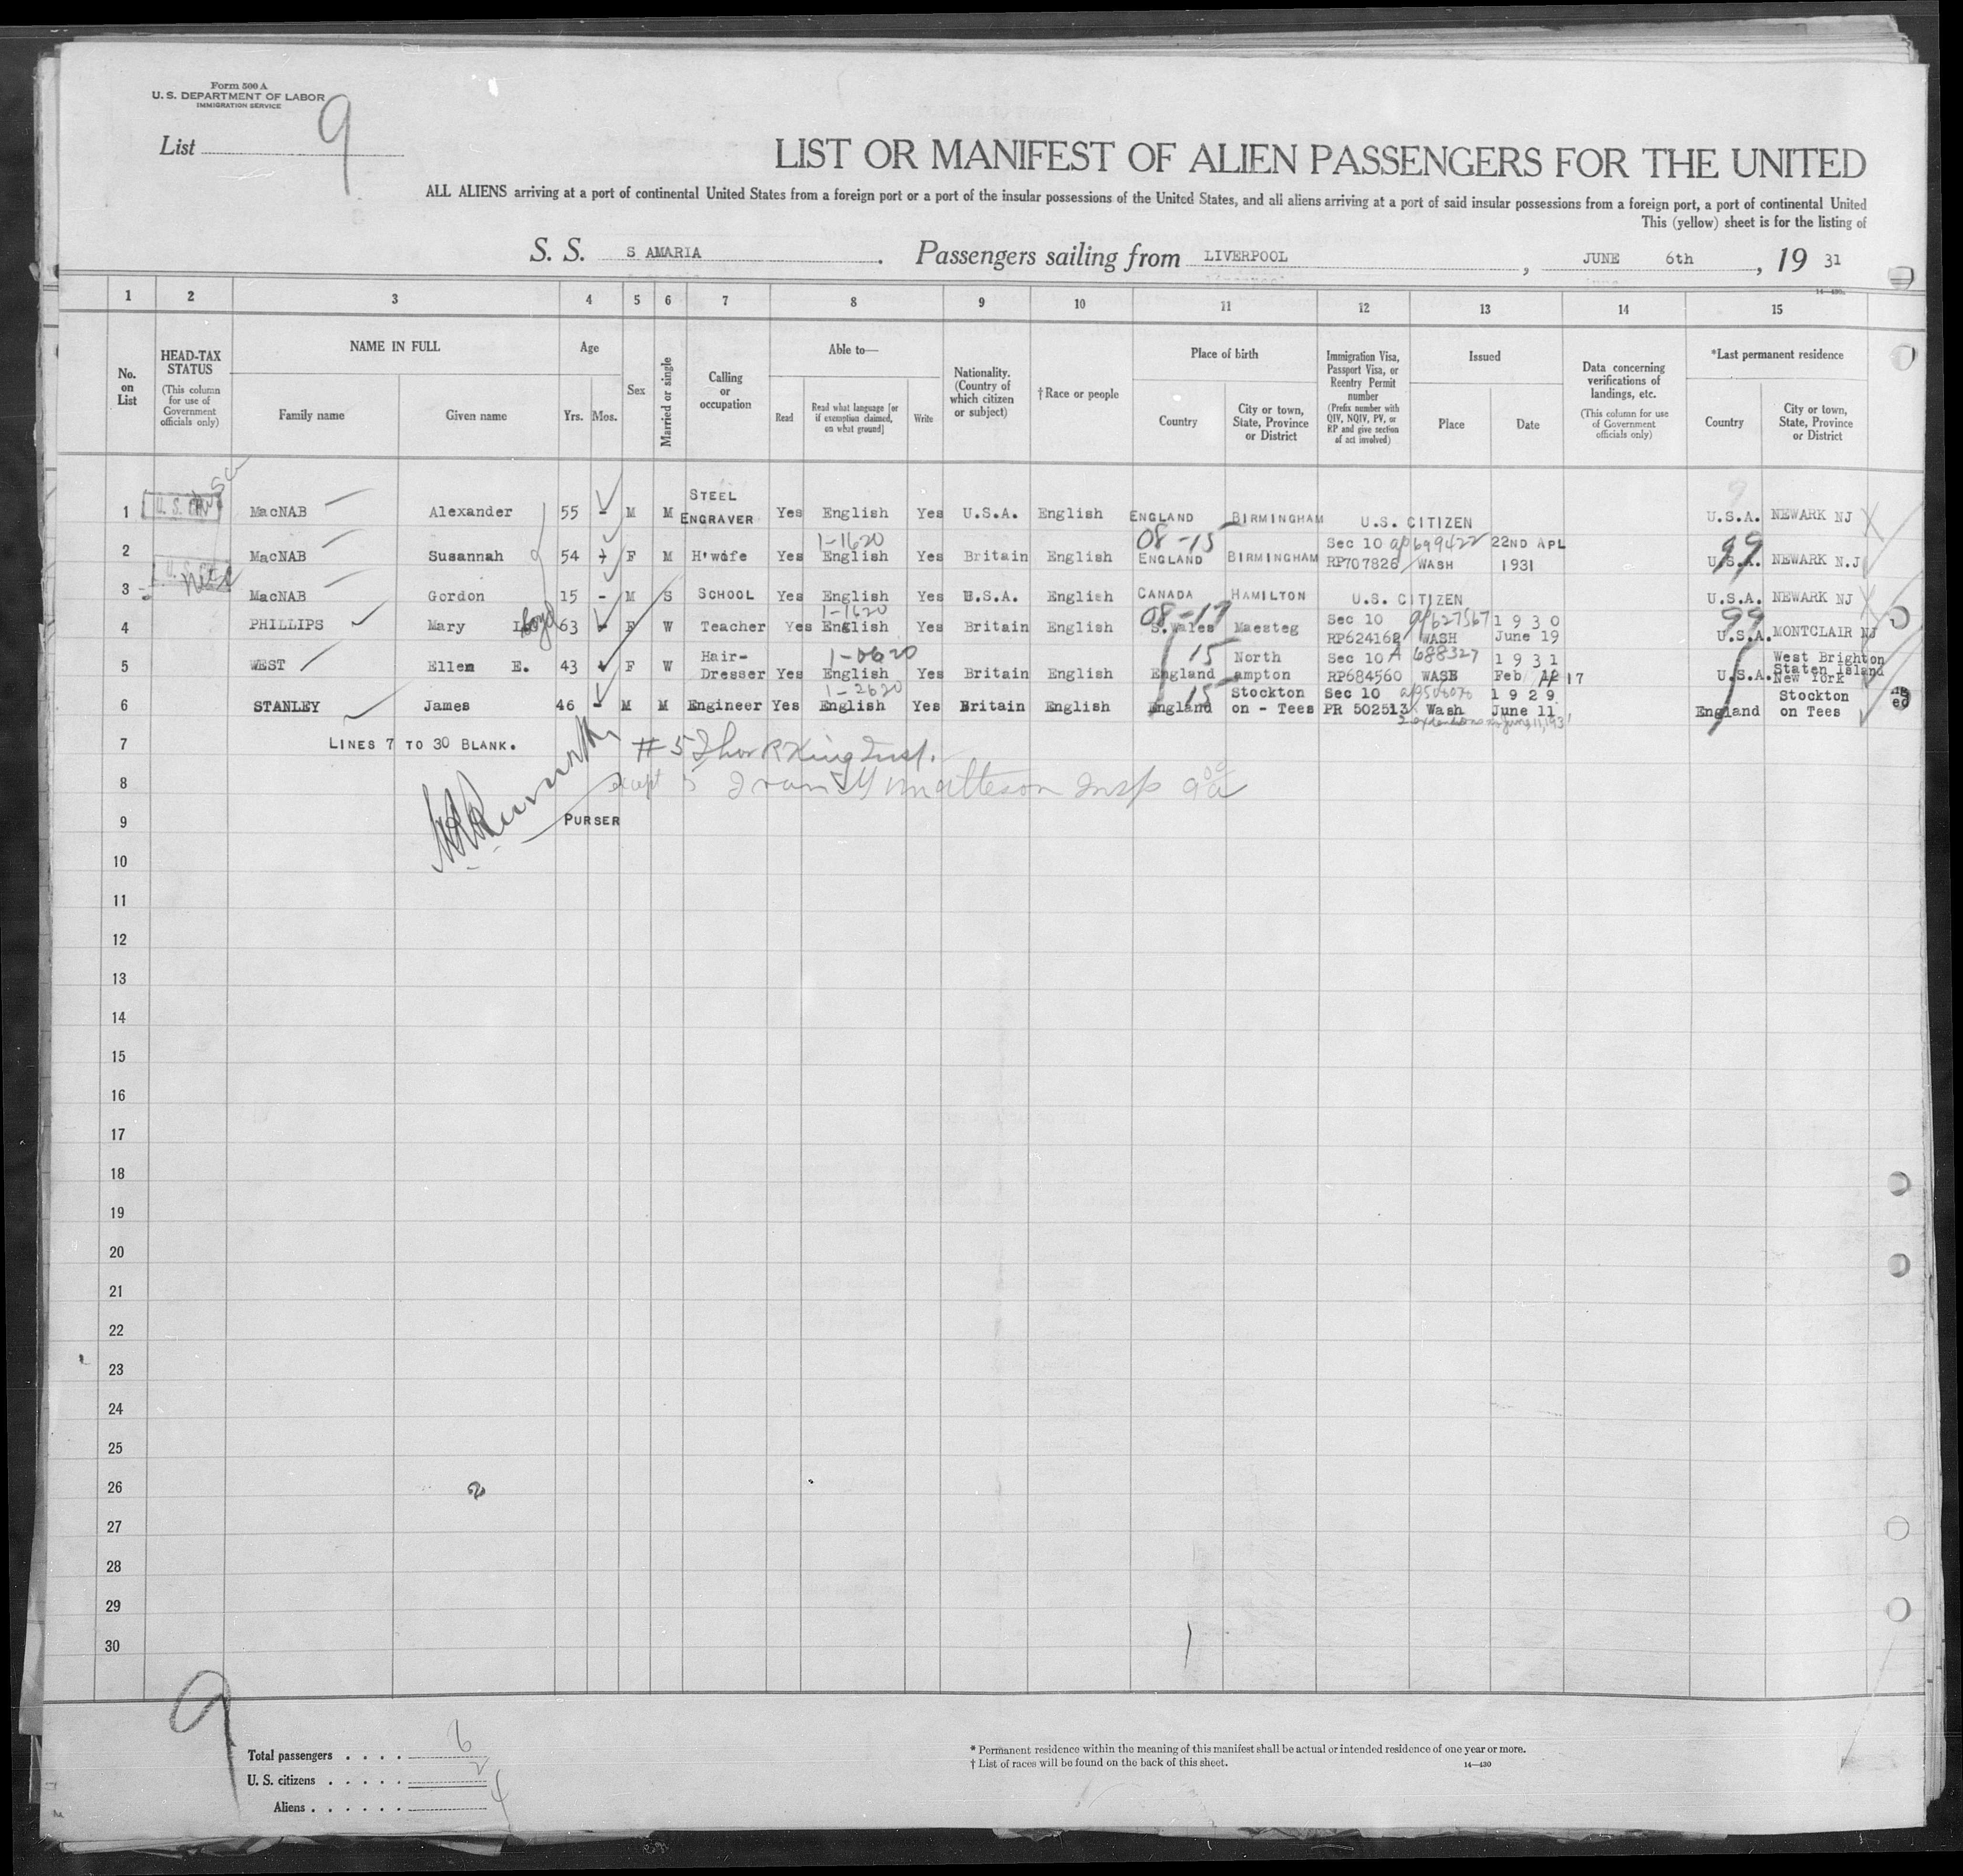 Form 500 A
U. S. DEPARTMENT OF LABOR
IMMIGRATION SERVICE
List 9
LIST OR MANIFEST OF ALIEN PASSENGERS FOR THE UNITED
ALL ALIENS arriving at a port of continental United States from a foreign port or a port of the insular possessions of the United States, and all aliens arriving at a port of said insular possessions from a foreign port, a port of continental United
This (yellow) sheet is for the listing of
S. S. S AMARIA. Passengers sailing from LIVERPOOL, JUNE 6th, 19 31
14—430a
1 2 3 4 5 6 7 8 9 10 11 12 13 14 15
No. on List
HEAD-TAX STATUS
(This column for use of Government officials only)
NAME IN FULL
Family name Given name
Age
Yrs. Mos.
Sex
Married or single
Calling or occupation
Able to—
Read Read what language [or if exemption claimed, on what ground] Write
Nationality. (Country of which citizen or subject)
† Race or people
Place of birth
Country City or town, State, Province or District
Immigration Visa, Passport Visa, or Reentry Permit number
(Prefix number with QIV, NQIV, PV, or RP and give section of act involved)
Issued
Place Date
Data concerning verifications of landings, etc.
(This column for use of Government officials only)
*Last permanent residence
Country City or town, State, Province or District
1 MacNAB Alexander 55 - M M STEEL ENGRAVER Yes English Yes U.S.A. English ENGLAND BIRMINGHAM U.S. CITIZEN U.S.A. NEWARK NJ
1-1620 08-15 99
2 MacNAB Susannah 54 F M H'wife Yes English Yes Britain English ENGLAND BIRMINGHAM Sec 10 RP707826 699422 WASH 22ND APL 1931 U.S.A. NEWARK N.J
3 MacNAB Gordon 15 - M S SCHOOL Yes English Yes U.S.A. English CANADA HAMILTON U.S. CITIZEN U.S.A. NEWARK NJ
1-1620 08-17 99
4 PHILLIPS Mary Lloyd 63 F W Teacher Yes English Yes Britain English S.Wales Maesteg Sec 10 RP624162 627567 WASH 1930 June 19 U.S.A. MONTCLAIR NJ
1-0620 15
5 WEST Ellen E. 43 F W Hair-Dresser Yes English Yes Britain English England North ampton Sec 10 RP684560 A 688327 WASH 1931 Feb 17 U.S.A. West Brighton Staten Island New York
1-2620 15
6 STANLEY James 46 - M M Engineer Yes English Yes Britain English England Stockton on - Tees Sec 10 PR 502513 Wash 1929 June 11 England Stockton on Tees
2 extensions to June 11, 1931
7 LINES 7 TO 30 BLANK. # 5 Thor R King Insp.
8 except 5 Matteson Insp
9 PURSER
10
11
12
13
14
15
16
17
18
19
20
21
22
23
24
25
26
27
28
29
30
9
Total passengers . . . . 6
U. S. citizens . . . . . 2
Aliens . . . . . . 4
* Permanent residence within the meaning of this manifest shall be actual or intended residence of one year or more.
† List of races will be found on the back of this sheet.
14—430